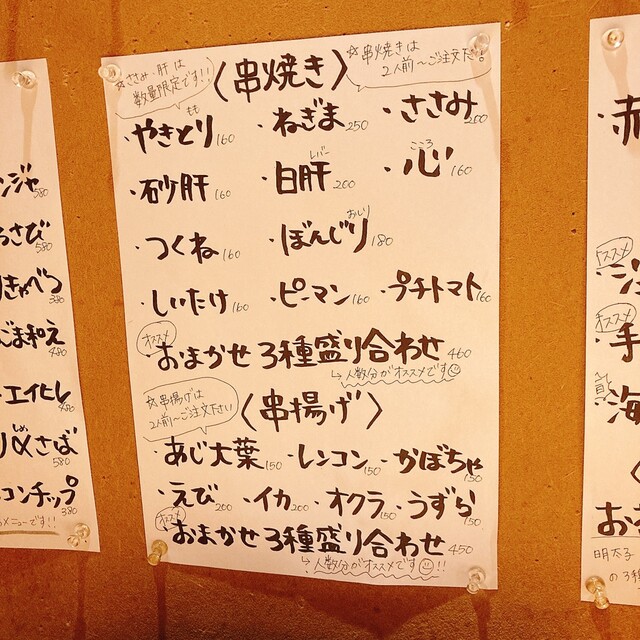 ンジャ 580
さび 580
きゃべつ 380
ごま和え 480
エイヒレ 480
しめさば 580
コンチップ 380
メニューです!!
☆ささみ・肝は
数量限定です!!
〈串焼き〉
☆串焼きは
2人前〜ご注文下さい!
・やきとり もも 160 ・ねぎま 250 ・ささみ 200
・砂肝 160 ・白肝 レバー 200 ・心 こころ 160
・つくね 160 ・ぼんじり おしり 180
・しいたけ 160 ・ピーマン 160 ・プチトマト 160
オススメ
・おまかせ 3種盛り合わせ 460
↳人数分がオススメです☺
☆串揚げは
2人前〜ご注文下さい
〈串揚げ〉
・あじ大葉 150 ・レンコン 150 ・かぼちゃ 150
・えび 200 ・イカ 200 ・オクラ 150 ・うずら 150
オススメ
・おまかせ 3種盛り合わせ 450
↳人数分がオススメです☺!!
・赤
オススメ
オススメ
・手
海
〈
おま
明太子
の3種